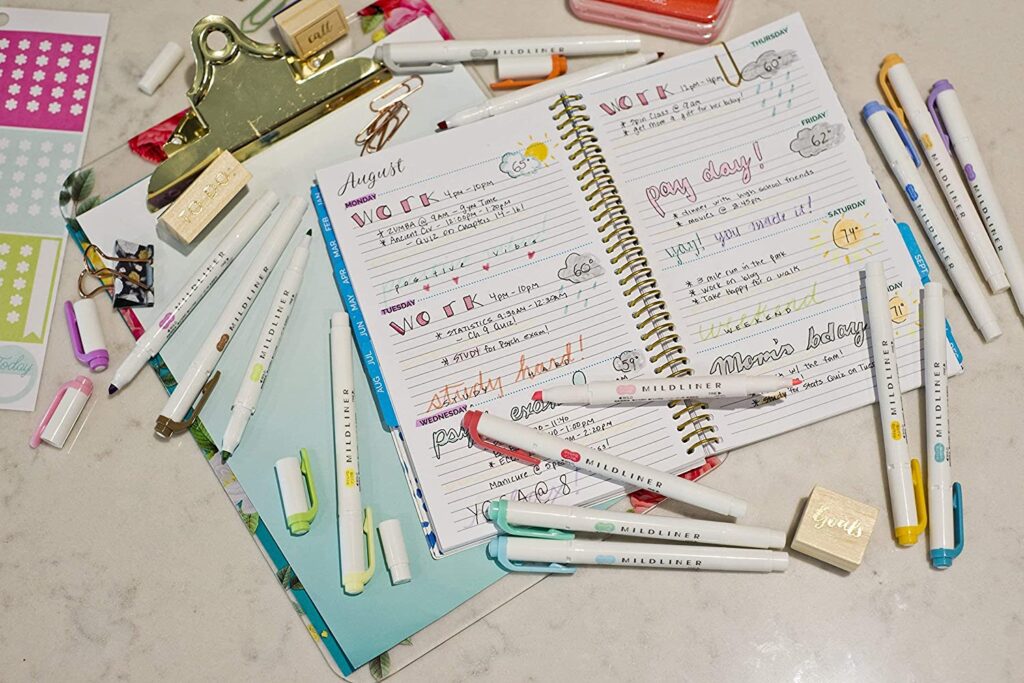 call
to do
today
MILDLINER
August
JAN
FEB
MAR
APR
MAY
JUN
JUL
AUG
MONDAY
65°
WORK 4pm-10pm
* ZUMBA @ 9AM - 9pm
* Ancient Civ - 12:00pm - 1:20pm
- QUIZ on Chapters 14-16!
positive vibes
TUESDAY
60°
WORK 4pm-10pm
* STATISTICS 9:30AM-12:30AM
- Ch 9 Quiz!
* STUDY for Psych exam!
study hard!
WEDNESDAY
59°
Manicure @ 5pm
YOGA @ 8
THURSDAY
60°
WORK 12pm-4pm
* Spin Class @ 9am
* get mom a gift for her bday!
FRIDAY
62°
pay day!
* dinner with high school friends
* movies @ 8:45pm
SATURDAY
74°
yay! you made it!
* 3 mile run in the park
* Work on blog
* Take Happy for a walk
SEPT
71°
weekend
WEEKEND
Mom's bday
w/ the fam!
* Study for Stats Quiz on Tues
MILDLINER
MILDLINER
MILDLINER
MILDLINER
MILDLINER
MILDLINER
MILDLINER
Goals